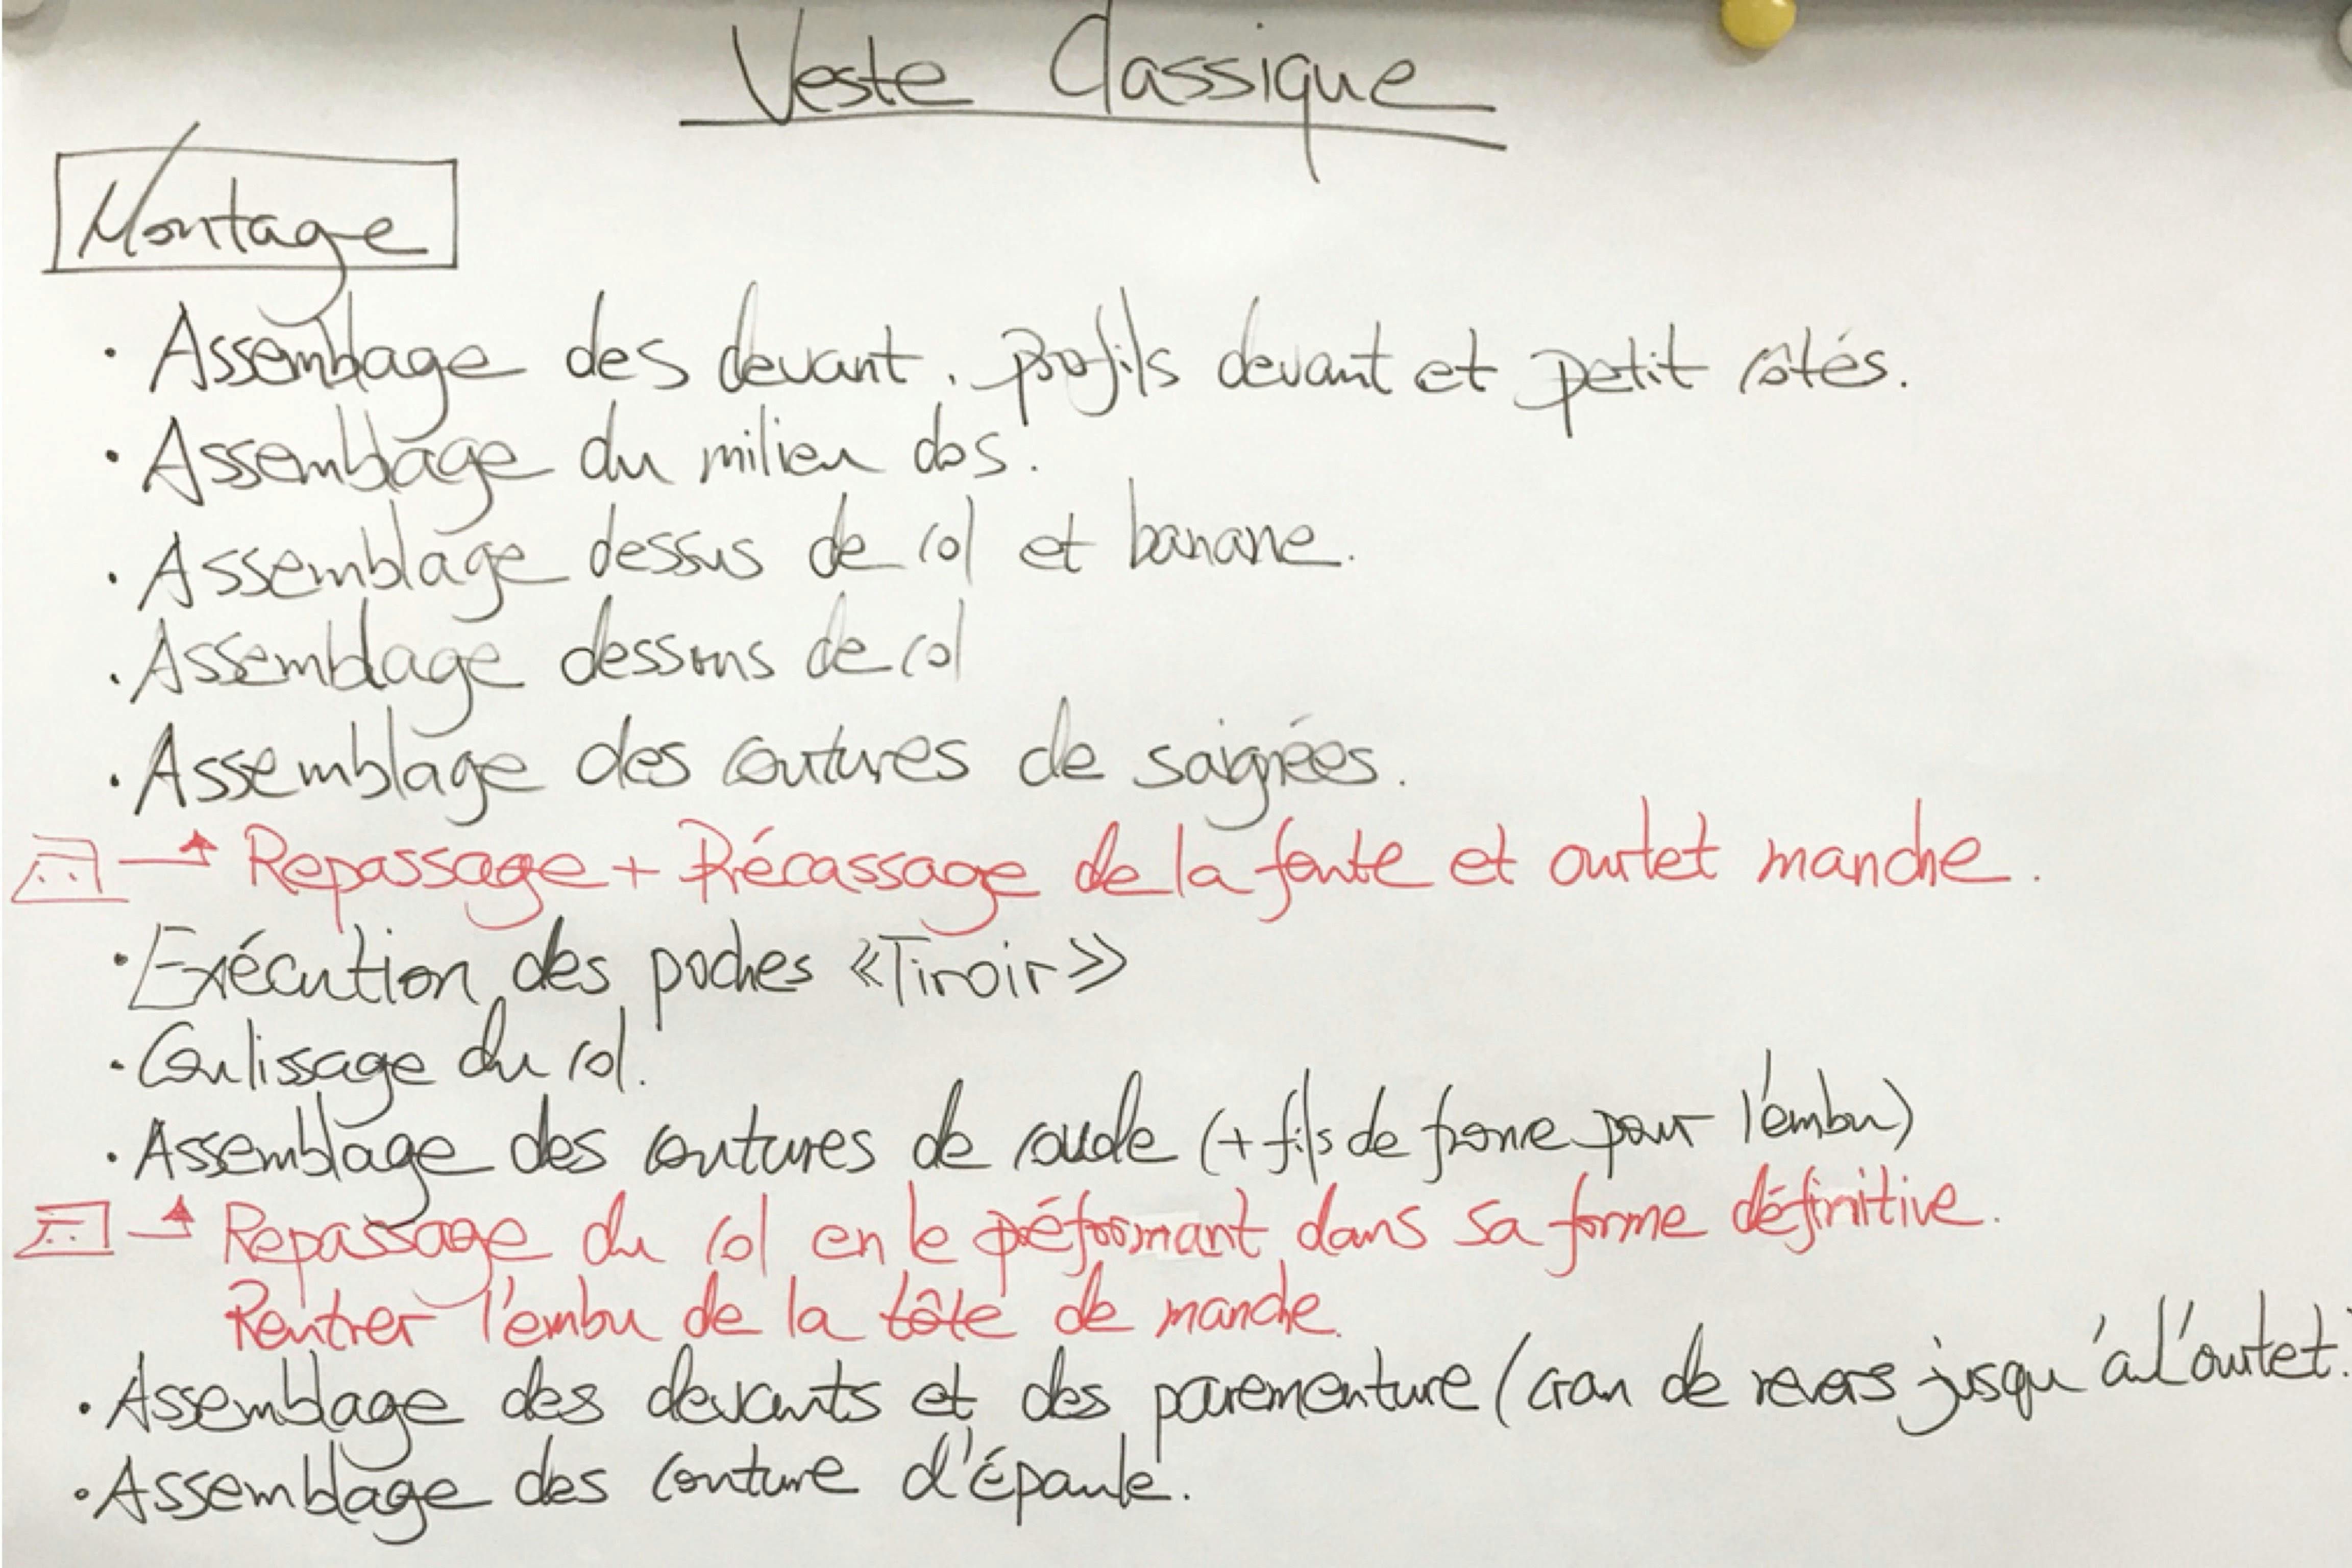 Veste Classique
Montage
· Assemblage des devant, profils devant et petit côtés.
· Assemblage du milieu dos.
· Assemblage dessus de col et banane.
· Assemblage dessous de col
· Assemblage des coutures de saignées.
→ Repassage + Précassage de la fente et ourlet manche.
· Exécution des poches «Tiroir»
· Coulissage du col.
· Assemblage des coutures de coude (+ fils de fronce pour l'embu)
→ Repassage du col en le préformant dans sa forme définitive.
Rentrer l'embu de la tête de manche.
· Assemblage des devants et des parementure (cran de revers jusqu'à l'ourlet.
· Assemblage des couture d'épaule.